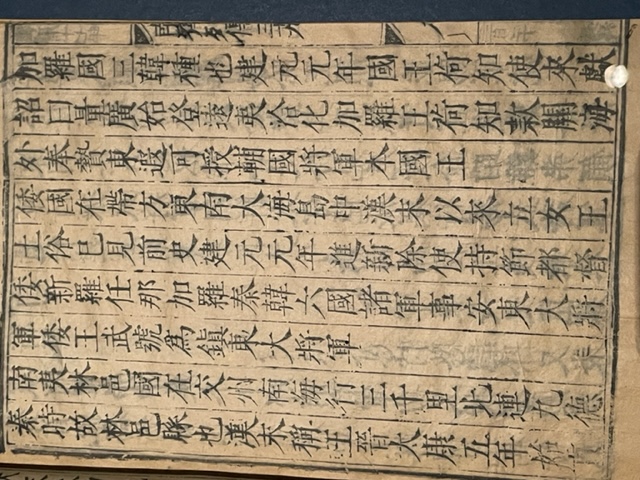 加羅國三韓種也建元元年國王荷知使來獻
詔曰量廣始登遠夷洽化加羅王荷知款關海
外奉贄東遐可授輔國將軍本國王
倭國在帶方東南大海島中漢末以來立女王
土俗已見前史建元元年進新除使持節都督
倭新羅任那加羅秦韓六國諸軍事安東大將
軍倭王武號為鎮東大將軍
南夷林邑國在交州南海行三千里北連九德
秦時故林邑縣也漢末稱王晉太康五年始